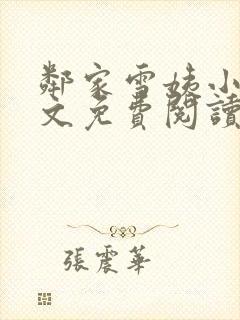 鄰家雪姨小
文免費閱讀
張震華